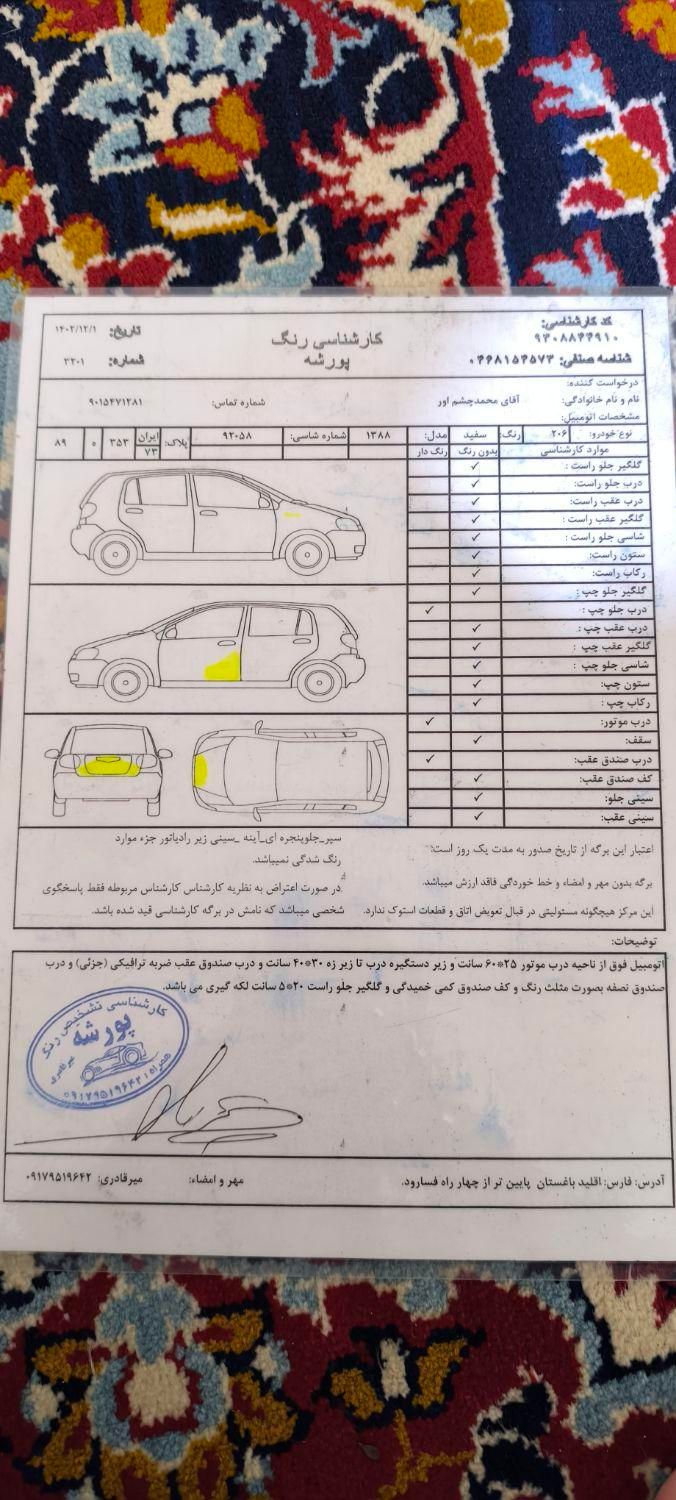 کد کارشناسی:
۹۳۰۸۸۴۴۹۱۰
شناسه صنفی: ۰۴۶۸۱۵۴۵۷۳
کارشناسی رنگ
پورشه
تاریخ: ۱۴۰۲/۱۲/۱
شماره: ۳۲۰۱
درخواست کننده:
نام و نام خانوادگی: آقای محمدچشم اور شماره تماس: ۹۰۱۵۴۷۱۲۸۱
مشخصات اتومبیل:
نوع خودرو: ۲۰۶ رنگ: سفید مدل: ۱۳۸۸ شماره شاسی: ۹۲۰۵۸ پلاک: ایران ۷۳ ۳۵۳ ه ۸۹
موارد کارشناسی بدون رنگ رنگ دار
گلگیر جلو راست: ✓
درب جلو راست: ✓
درب عقب راست: ✓
گلگیر عقب راست: ✓
شاسی جلو راست: ✓
ستون راست: ✓
رکاب راست: ✓
گلگیر جلو چپ: ✓
درب جلو چپ: ✓
درب عقب چپ: ✓
گلگیر عقب چپ: ✓
شاسی جلو چپ: ✓
ستون چپ: ✓
رکاب چپ: ✓
درب موتور: ✓
سقف: ✓
درب صندق عقب: ✓
کف صندق عقب: ✓
سینی جلو: ✓
سینی عقب: ✓
اعتبار این برگه از تاریخ صدور به مدت یک روز است:
برگه بدون مهر و امضاء و خط خوردگی فاقد ارزش میباشد.
این مرکز هیچگونه مسئولیتی در قبال تعویض اتاق و قطعات استوک ندارد.
سپر_جلوپنجره ای_آینه _سینی زیر رادیاتور جزء موارد
رنگ شدگی نمیباشد.
در صورت اعتراض به نظریه کارشناس کارشناس مربوطه فقط پاسخگوی
شخصی میباشد که نامش در برگه کارشناسی قید شده باشد.
توضیحات:
اتومبیل فوق از ناحیه درب موتور ۲۵*۶۰ سانت و زیر دستگیره درب تا زیر زه ۳۰*۴۰ سانت و درب صندوق عقب ضربه ترافیکی (جزئی) و درب
صندوق نصفه بصورت مثلث رنگ و کف صندوق کمی خمیدگی و گلگیر جلو راست ۲۰*۵ سانت لکه گیری می باشد.
کارشناسی تشخیص رنگ
پورشه
میرقادری
همراه: ۰۹۱۷۹۵۱۹۶۴۲
آدرس: فارس: اقلید باغستان پایین تر از چهار راه فسارود. مهر و امضاء: میرقادری: ۰۹۱۷۹۵۱۹۶۴۲